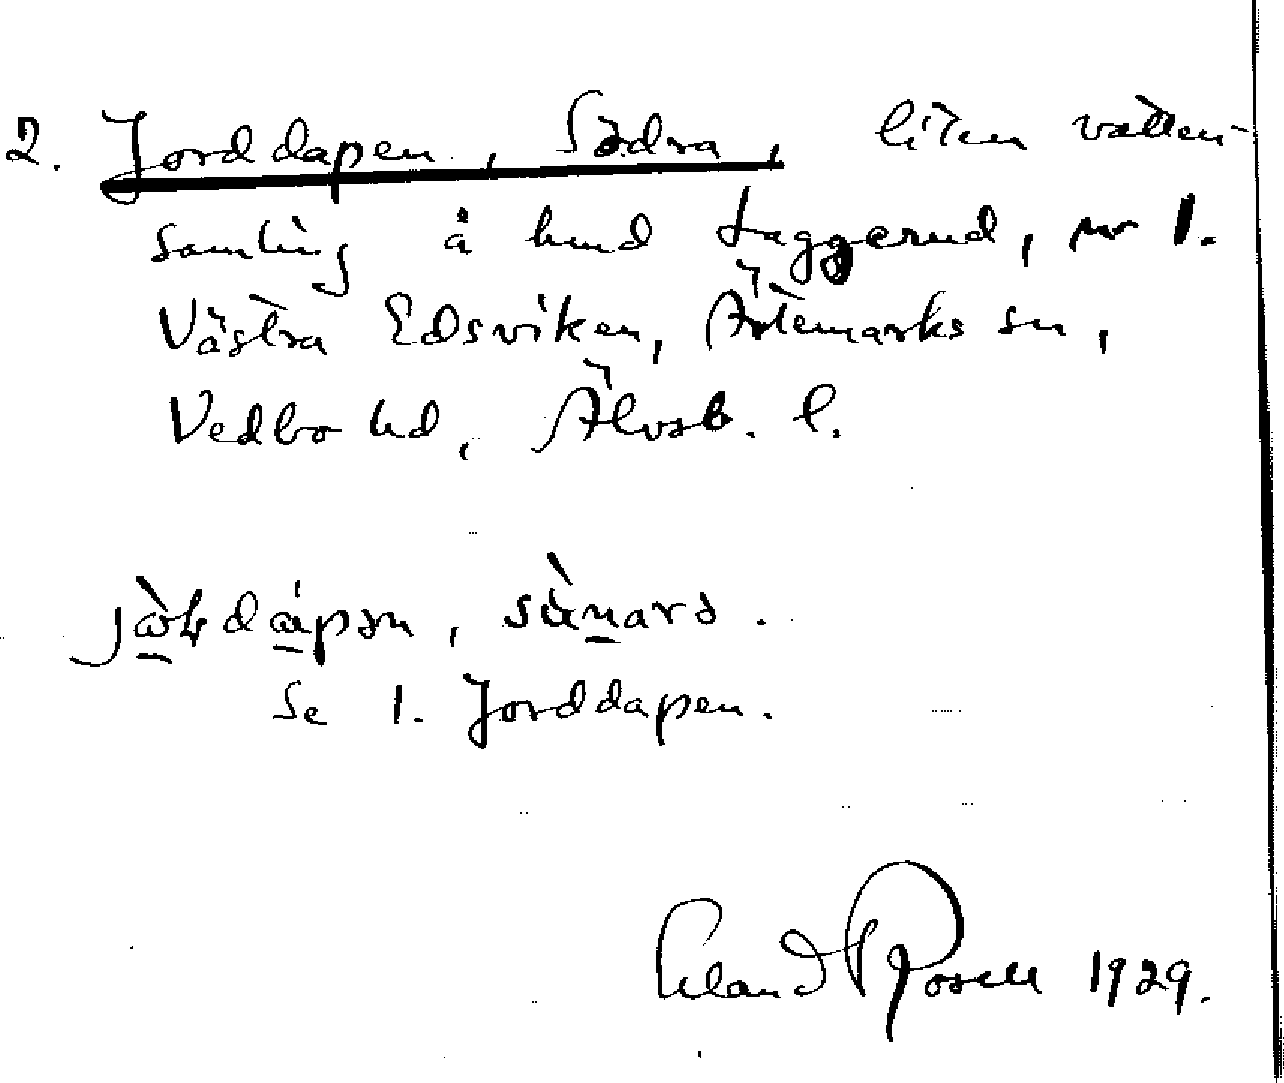 2. Jorddapen, Södra, liten vatten-
samling å hmd Laggerud, nr 1.
Västra Edsviken, Ärtemarks sn,
Vedbo hd, Älvsb. l.
Se 1. Jorddapen.
Erland Rosell 1929.